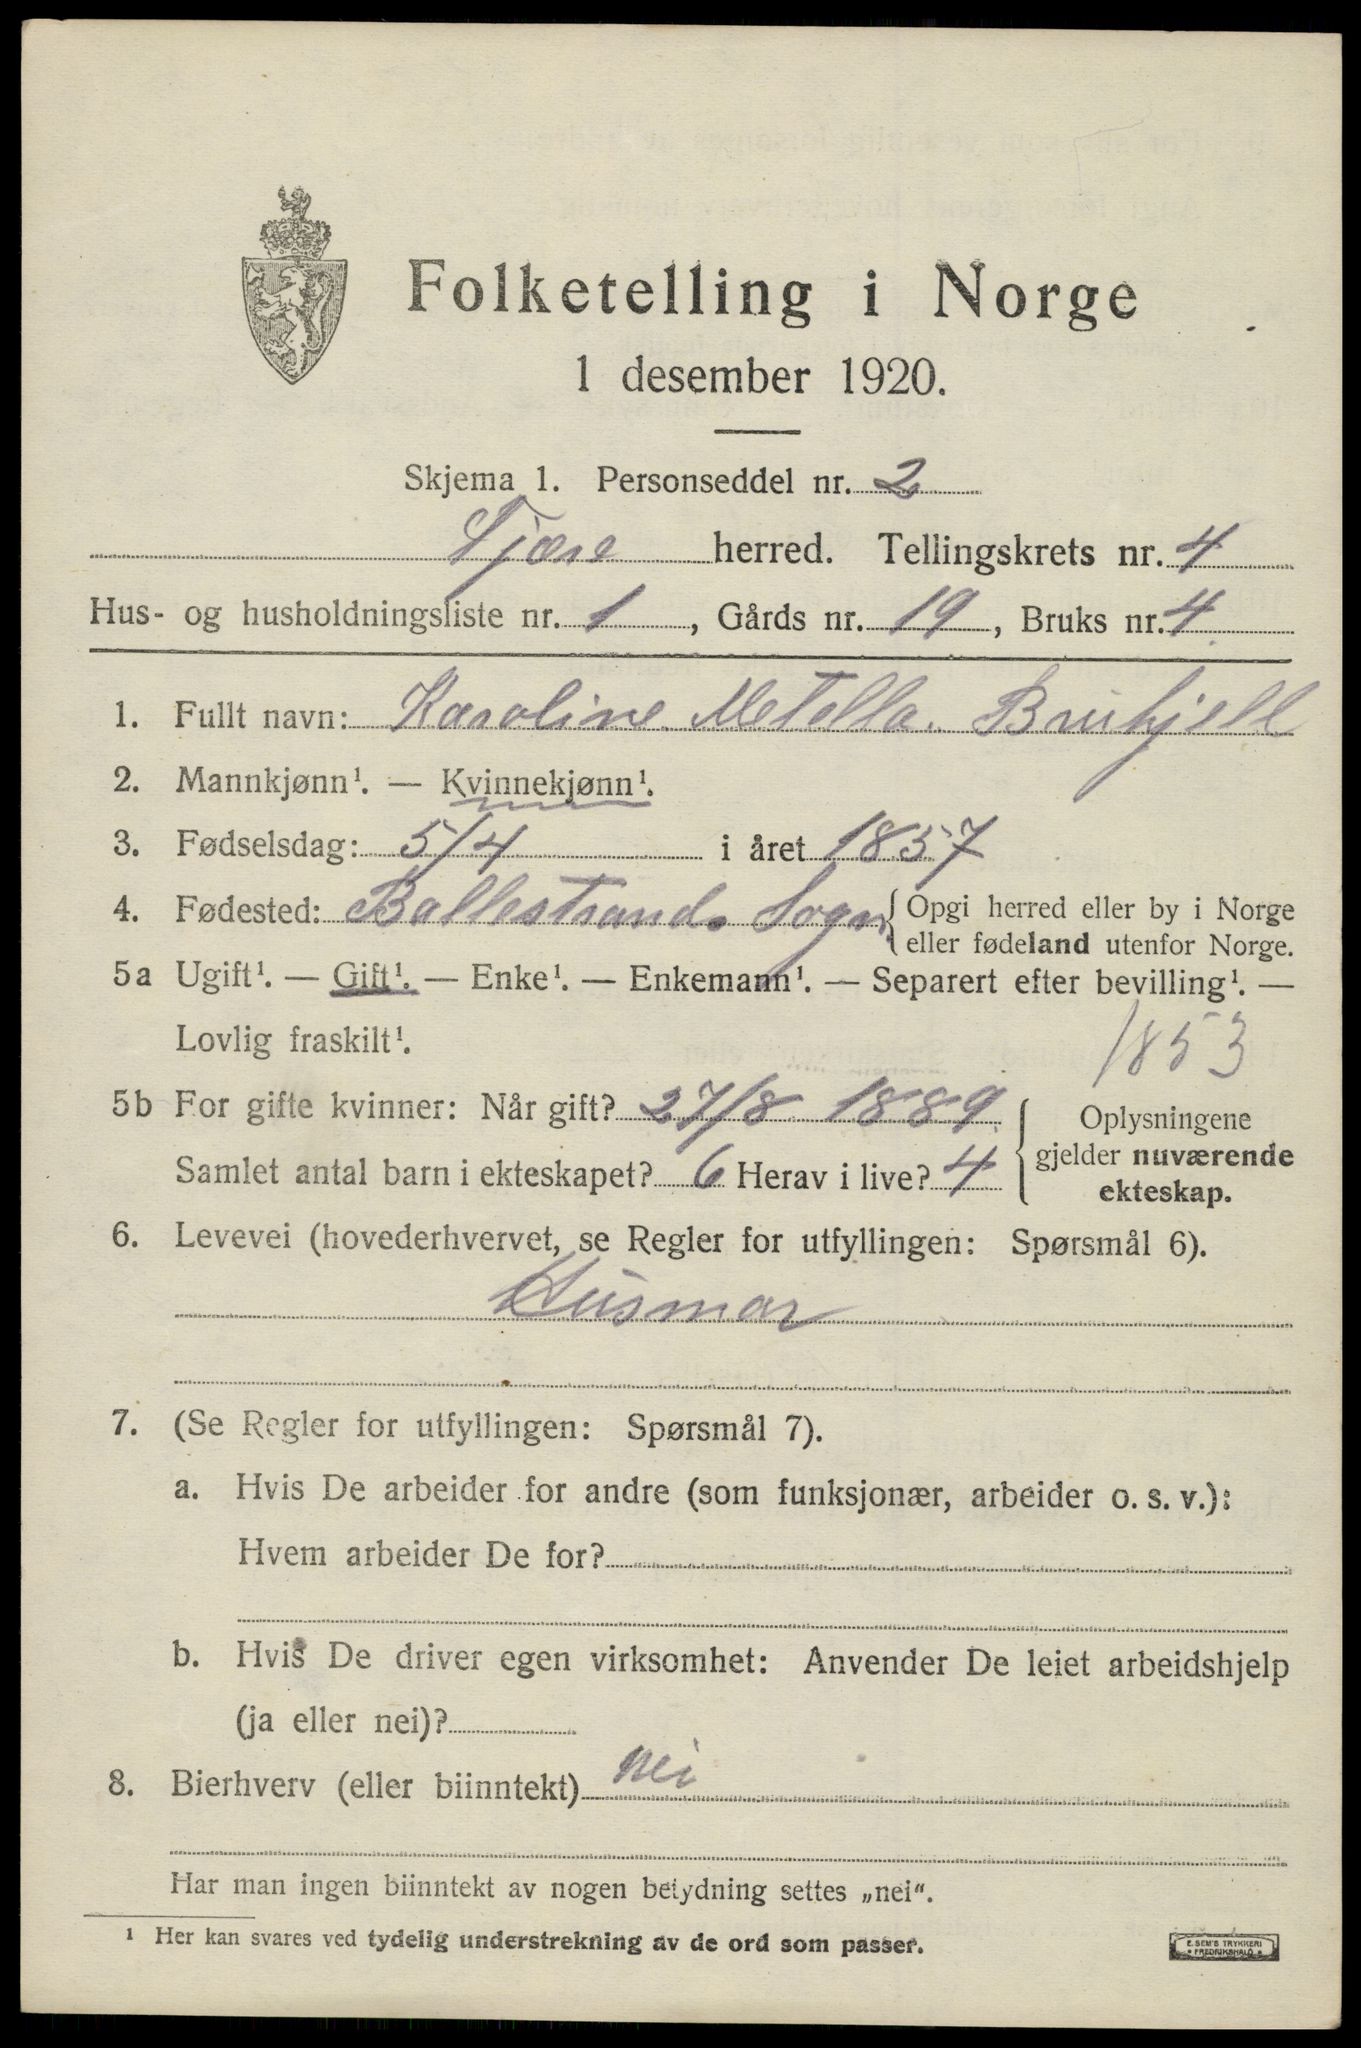 Folketelling i Norge
1 desember 1920.
Skjema 1. Personseddel nr. 2
Tjøse herred. Tellingskrets nr. 4
Hus- og husholdningsliste nr. 1, Gårds nr. 19, Bruks nr. 4
1. Fullt navn: Karoline Metella Bruhjell
2. Mannkjønn¹. — Kvinnekjønn¹.
3. Fødselsdag: 5/4 i året 1857
4. Fødested: Ballestrand. Sogn {Opgi herred eller by i Norge
eller fødeland utenfor Norge.
5a Ugift¹. — Gift¹. — Enke¹. — Enkemann¹. — Separert efter bevilling¹. —
Lovlig fraskilt¹.
1853
5b For gifte kvinner: Når gift? 27/8 1889 { Oplysningene
gjelder nuværende
ekteskap.
Samlet antal barn i ekteskapet? 6 Herav i live? 4
6. Levevei (hovederhvervet, se Regler for utfyllingen: Spørsmål 6).
Husmor
7. (Se Regler for utfyllingen: Spørsmål 7).
a. Hvis De arbeider for andre (som funksjonær, arbeider o. s. v.):
Hvem arbeider De for?
b. Hvis De driver egen virksomhet: Anvender De leiet arbeidshjelp
(ja eller nei)?
8. Bierhverv (eller biinntekt) nei
Har man ingen biinntekt av nogen betydning settes „nei“.
¹ Her kan svares ved tydelig understrekning av de ord som passer.
E. SEM'S TRYKKERI
FREDRIKSHALD